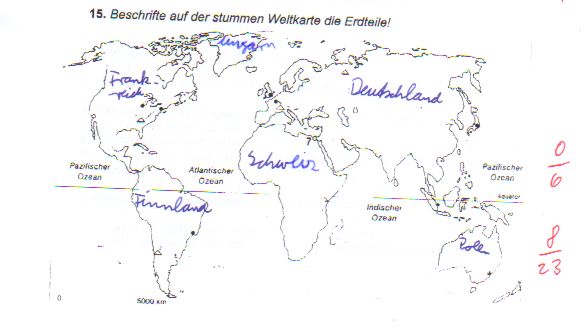 15. Beschrifte auf der stummen Weltkarte die Erdteile!
ungarn
Frank
reich
Deutschland
Schweiz
Pazifischer
Ozean
Atlantischer
Ozean
Pazifischer
Ozean
0
6
Finnland
Indischer
Ozean
Äquator
Polen
8
23
0
5000 km